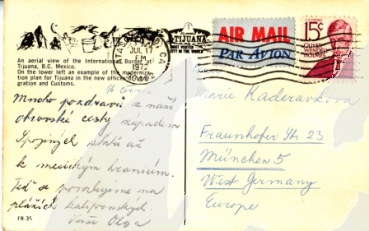 An aerial view of the International Border at
Tijuana, B.C. Mexico.
On the lower left an example of the moderniza-
tion plan for Tijuana in the new office
gration and Customs.
JUL 17
1972
TIJUANA
AIR MAIL
PAR AVION
15c
OLIVER
WENDELL
HOLMES
Mnoho pozdravů z naší
obrovské cesty západem
Spojených států až
k mexickým hranicím.
Teď se povalujeme na
plážích kalifornských.
Vaše Olga
FR-35
Marie Kaderavkova
Fraunhofer Str. 23
München 5
West Germany
Europe